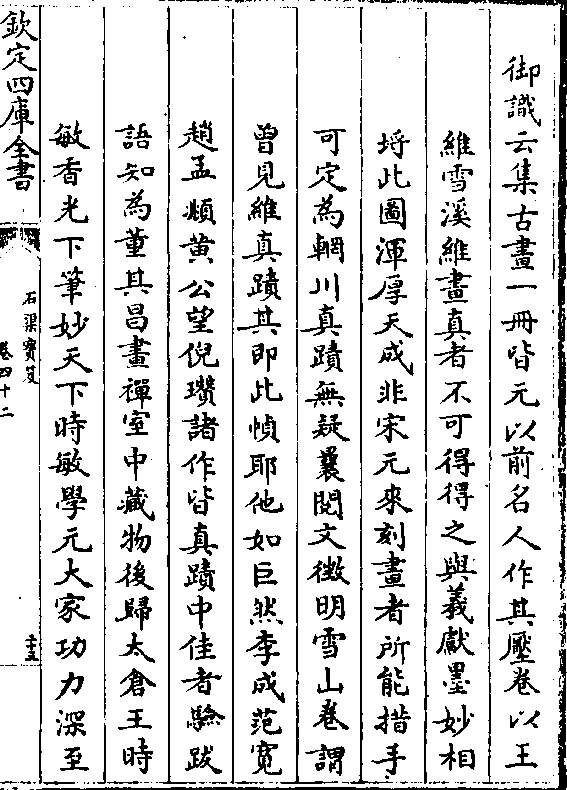 御識云集古畫一冊皆元以前名人作其壓卷以王
維雪溪維畫真者不可得得之與羲獻墨妙相
埒此圖渾厚天成非宋元來刻畫者所能措手
可定為輞川真蹟無疑曩閱文徴明雪山卷謂
曾見維真蹟其即此幀耶他如巨然李成范寛
趙孟頫黄公望倪瓚諸作皆真蹟中佳者驗跋
語知為董其昌畫禪室中藏物後歸太倉王時
敏香光下筆妙天下時敏學元大家功力深至
欽定四庫全書
石渠寳笈
卷四十二
二十五